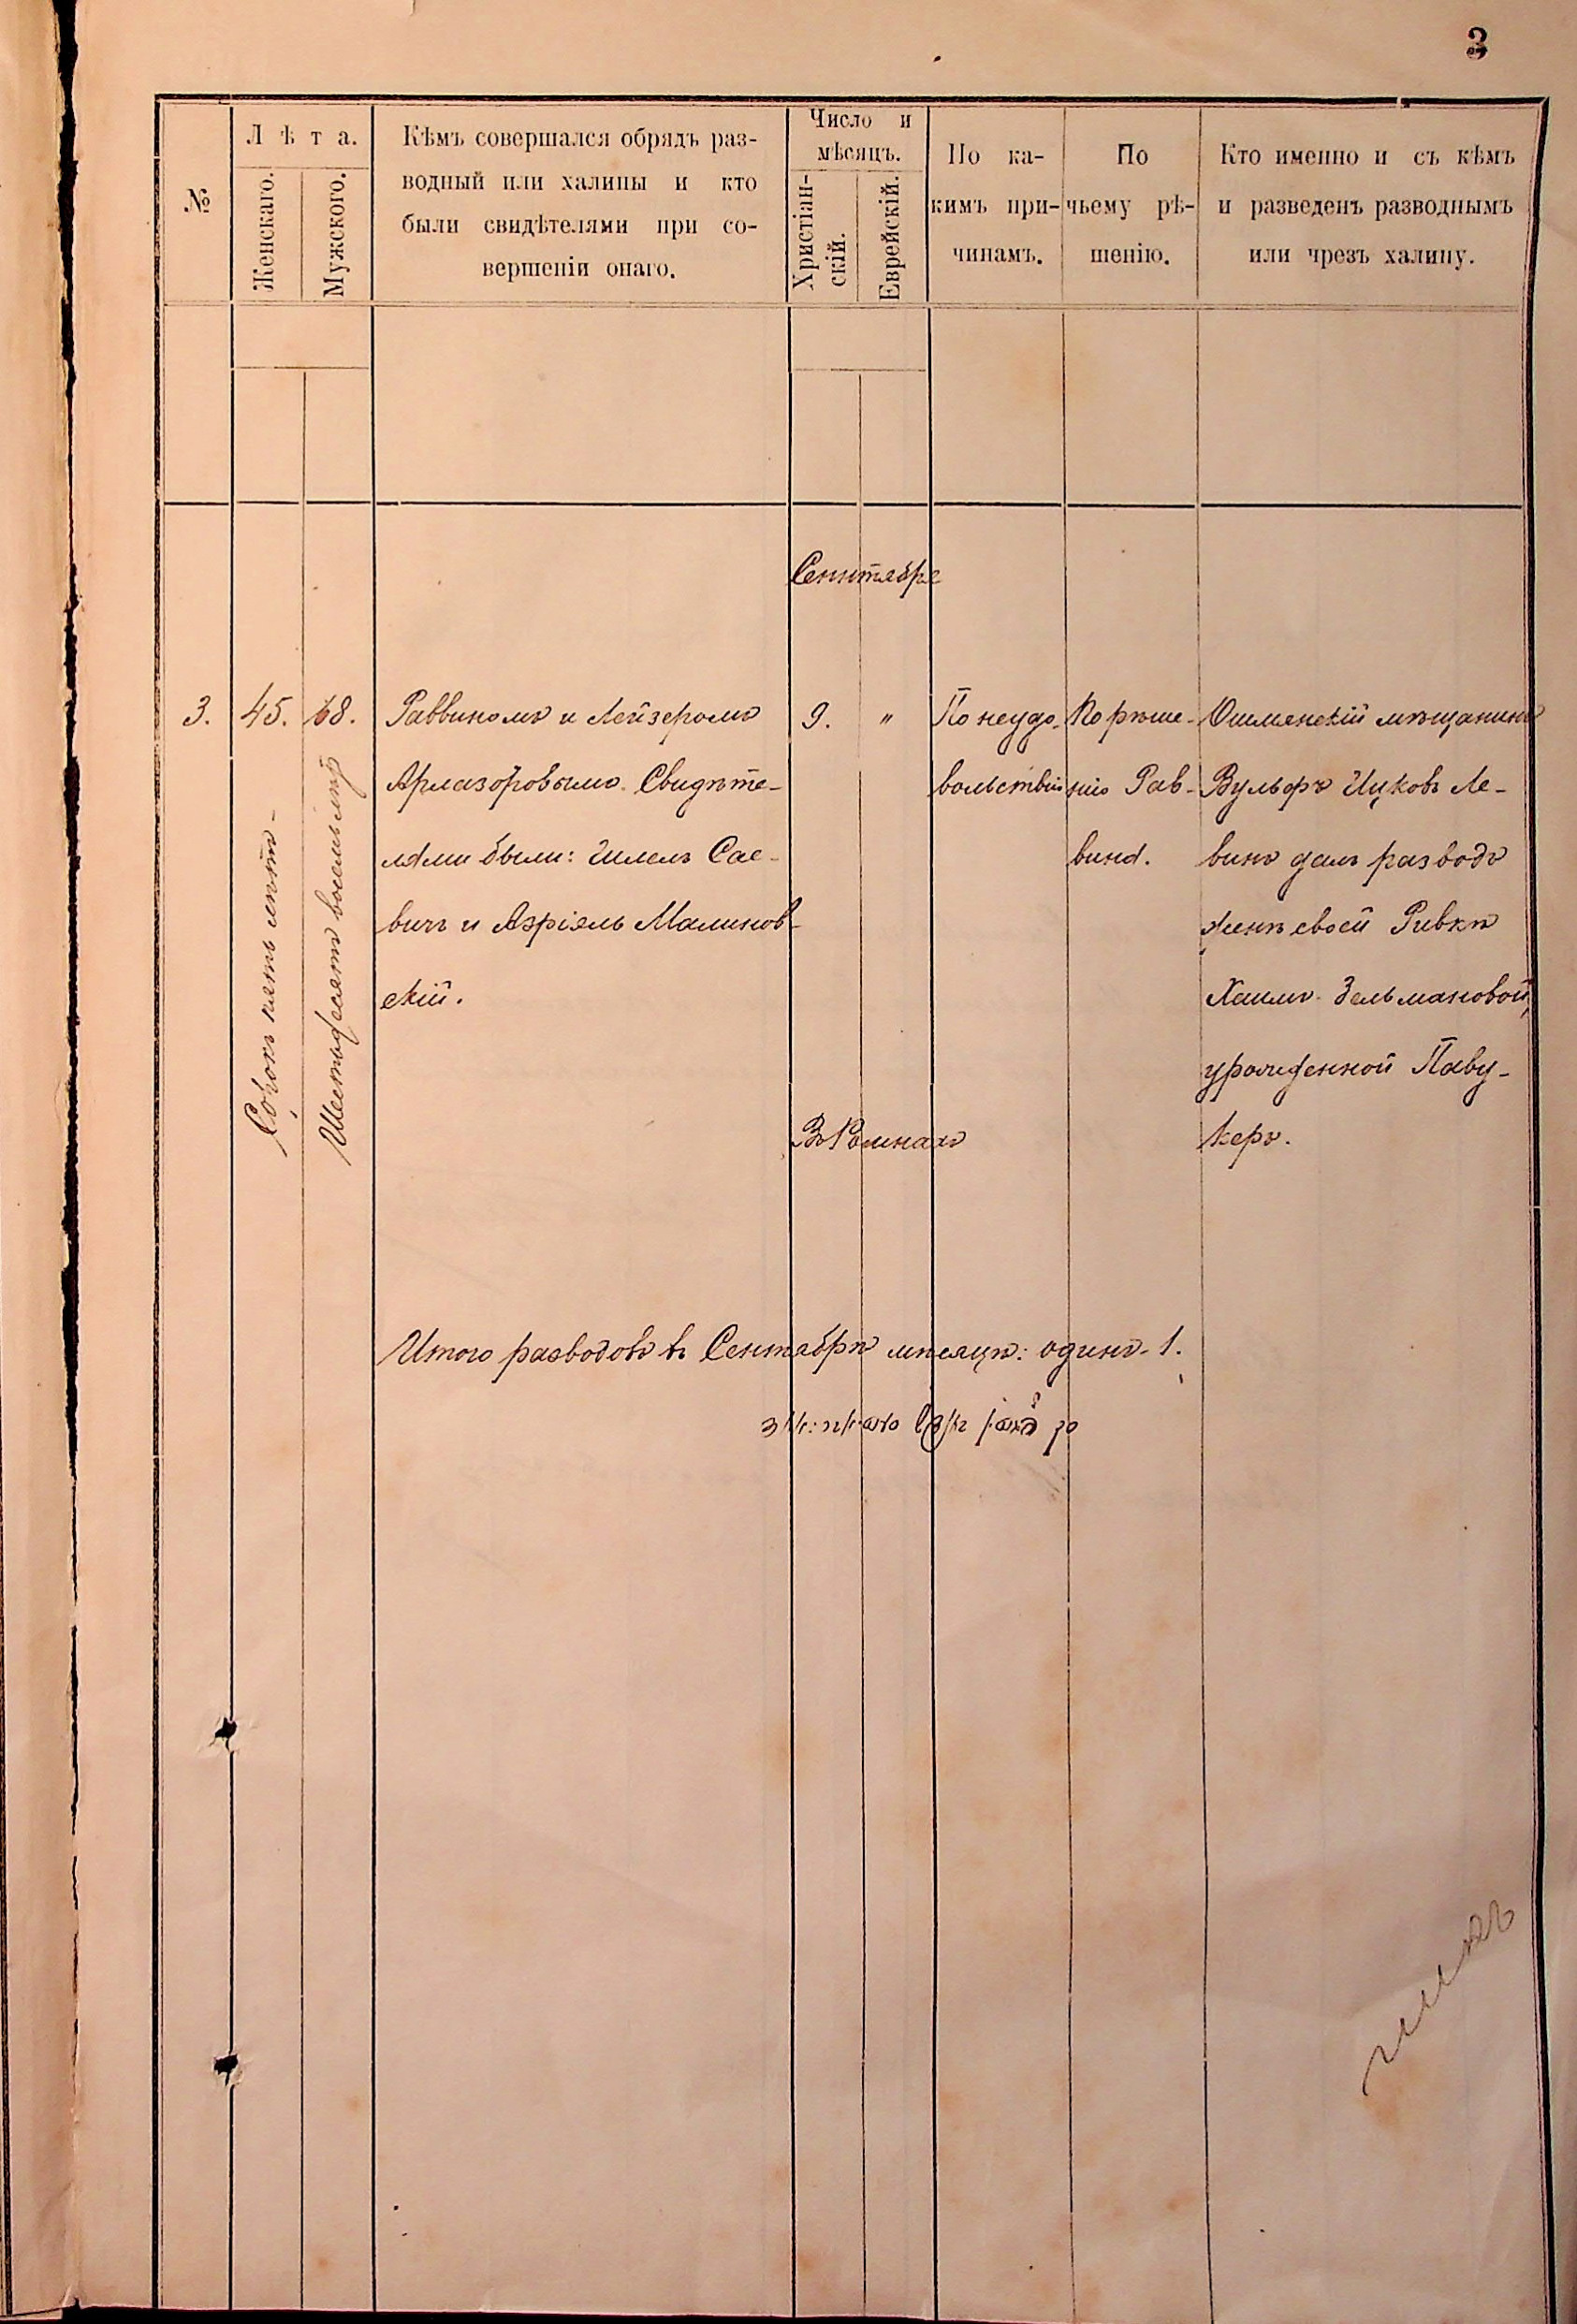 3
№
Лѣта.
Женскаго.
Мужского.
Кѣмъ совершался обрядъ раз-
водный или халицы и кто
были свидѣтелями при со-
вершеніи онаго.
Число и
мѣсяцъ.
Христіан-
скій.
Еврейскій.
По ка-
кимъ при-
чинамъ.
По
чьему рѣ-
шенію.
Кто именно и съ кѣмъ
и разведенъ разводнымъ
или чрезъ халицу.
Сентября
3.
45.
Сорокъ пять лѣтъ-
68.
Шестьдесятъ восемь лѣтъ
Раввиномъ и Лейзеромъ
Арлазоровымъ. Свидѣте-
лями были: Шлемъ Сае-
вичъ и Азріель Малинов-
скій.
9.
"
Въ Ромнахъ
По неудо-
вольствію
По рѣше-
нію Рав-
вина.
Ошмянскій мѣщанинъ
Вульфъ Ицковъ Ле-
винъ далъ разводъ
женѣ своей Ривкѣ
Хаимъ-Зельмановой,
урожденной Паву-
керъ.
Итого разводовъ въ Сентябрѣ мѣсяцѣ: одинъ-1.